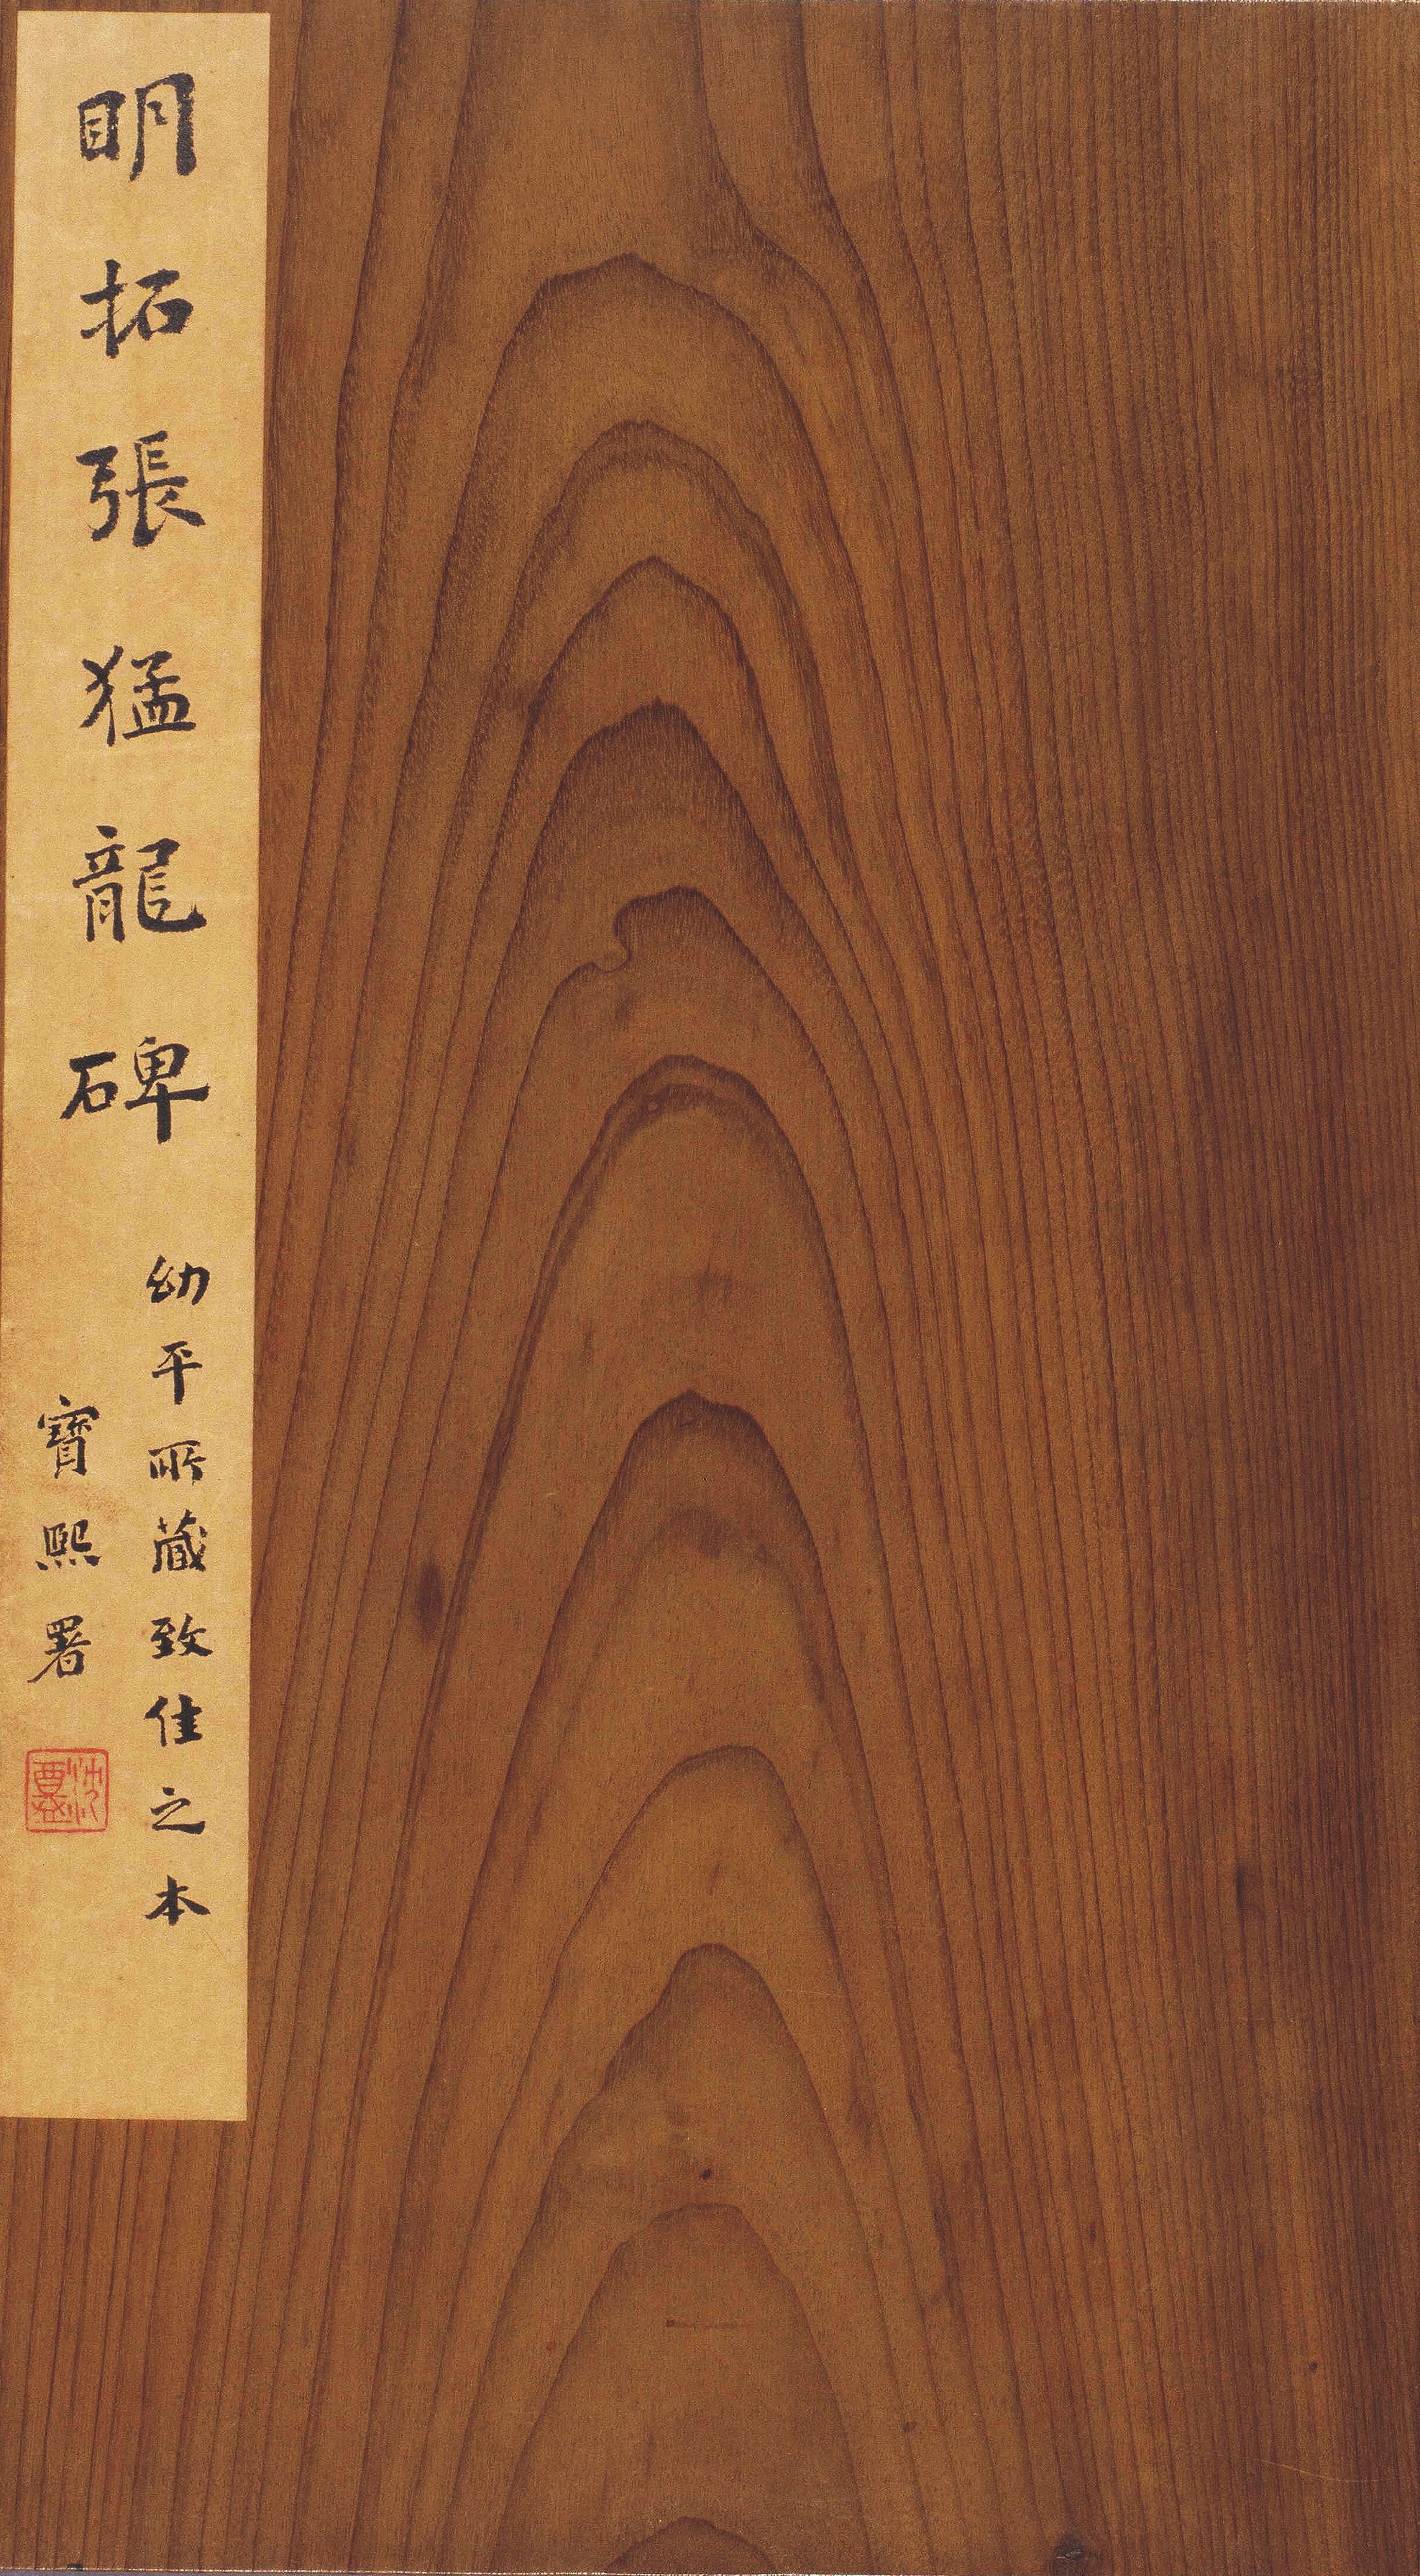 明拓張猛龍碑
幼平所藏致佳之本
寶熙署
沈盦